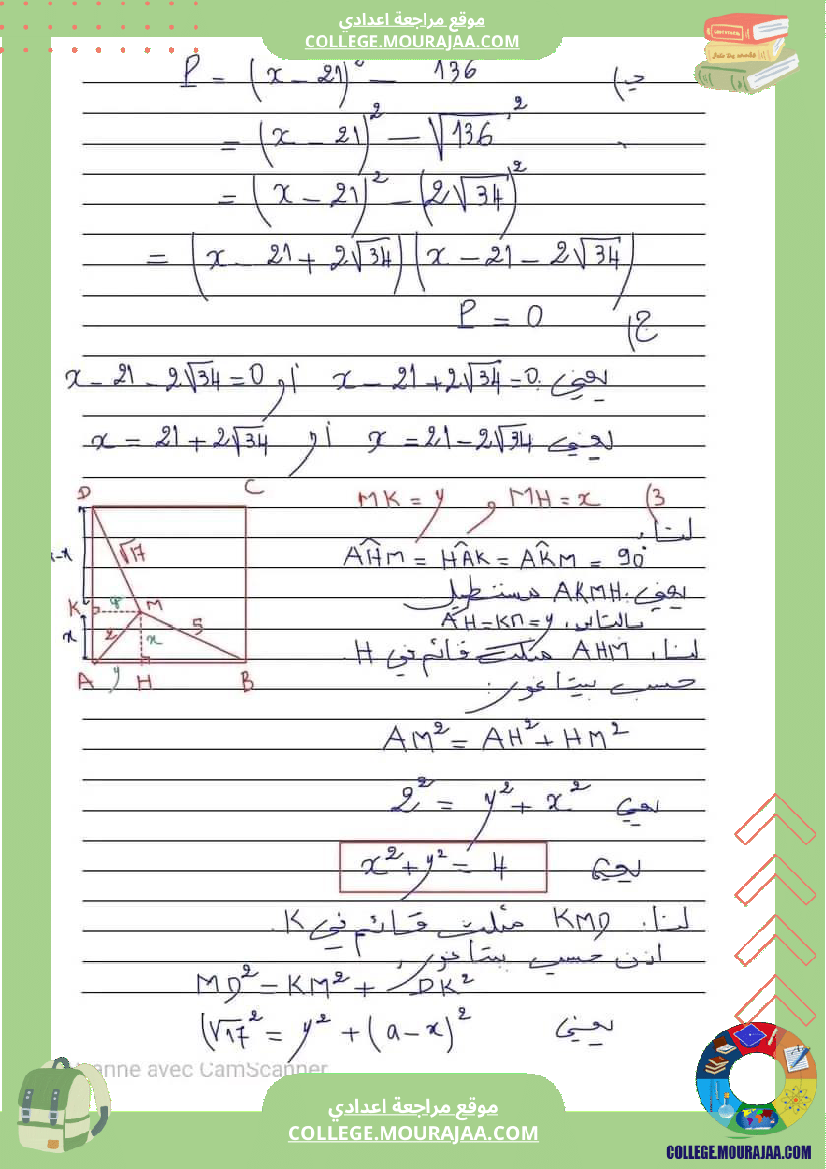 موقع مراجعة اعدادي
COLLEGE.MOURAJAA.COM
P = (x - 21)² - 136
= (x - 21)² - √136²
= (x - 21)² - (2√34)²
= (x - 21 + 2√34)(x - 21 - 2√34)
ج) P = 0
يعني x - 21 + 2√34 = 0 أو x - 21 - 2√34 = 0
يعني x = 21 - 2√34 أو x = 21 + 2√34
3) MH = x و MK = y
لنا:
AĤM = HÂK = AK̂M = 90°
يعني AKMH مستطيل
بالتالي AH = KM = y
لنا AHM مثلث قائم في H.
حسب بيتاغور:
AM² = AH² + HM²
يعني 2² = y² + x²
يعني x² + y² = 4
لنا KMD مثلث قائم في K.
اذن حسب بيتاغور,
MD² = KM² + DK²
يعني (√17² = y² + (a - x)²
D
C
√17
-x
K
y
M
x
2
x
5
A
y
H
B
anne avec CamScanner
موقع مراجعة اعدادي
COLLEGE.MOURAJAA.COM
COLLEGE.MOURAJAA.COM